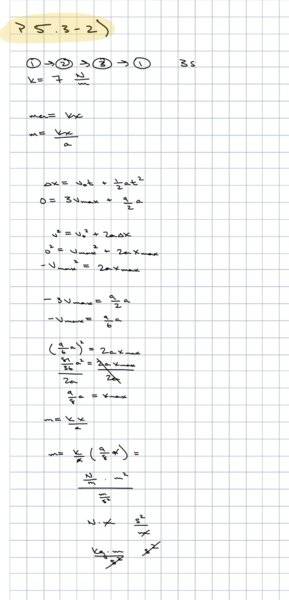 P 5.3-2)
① → ② → ③ → ① 3s
k = 7 N/m
ma = kx
m = kx/a
Δx = v₀t + 1/2 at²
0 = 3vmax + 9/2 a
v² = v₀² + 2aΔx
0² = vmax² + 2axmax
-vmax² = 2axmax
-3vmax = 9/2 a
-vmax = 9/6 a
(9/6 a)² = 2axmax
81/36 a² / 2a = 2axmax / 2a
9/8 a = xmax
m = kx/a
m = k/a (9/8 a) =
N/m · m² / m/s²
N · m s²/m
kg·m/s² s²